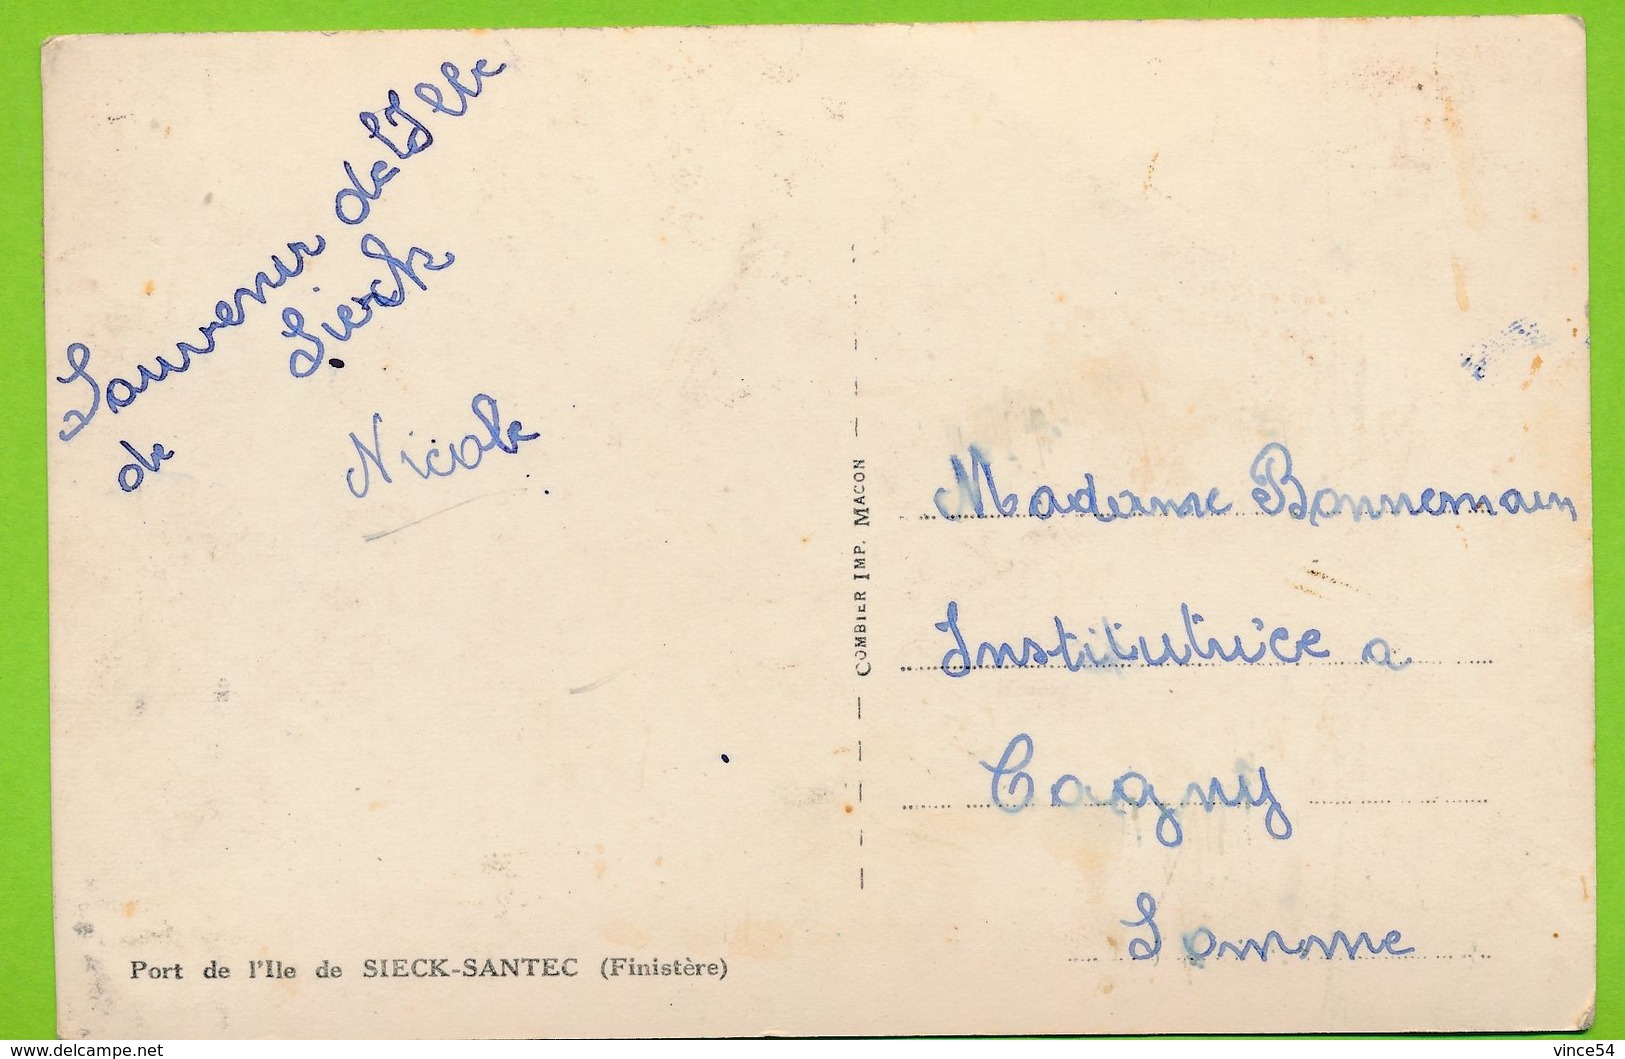 Souvenir de l'Ille
de Sieck
Nicole
COMBIER IMP. MACON
Madame Bonnemain
Institutrice a
Cagny
Somme
Port de l'Ile de SIECK-SANTEC (Finistère)
www.delcampe.net
vince54